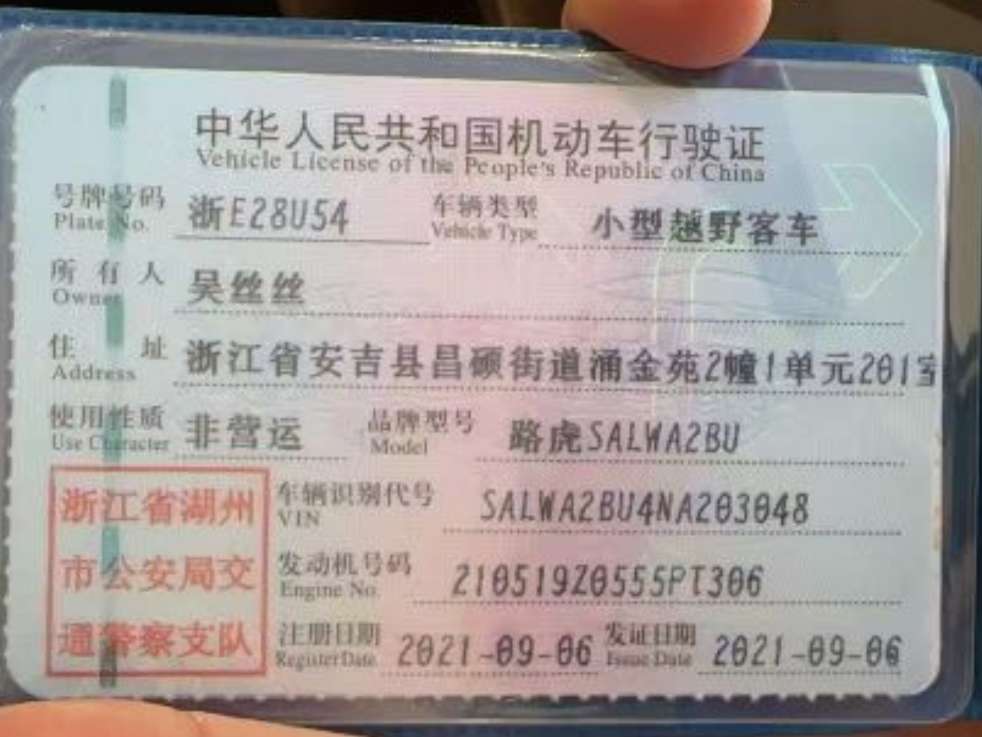 中华人民共和国机动车行驶证
Vehicle License of the People's Republic of China
号牌号码 浙E28U54 车辆类型 小型越野客车
Plate No. Vehicle Type
所有人 吴丝丝
Owner
住址 浙江省安吉县昌硕街道涌金苑2幢1单元201室
Address
使用性质 非营运 品牌型号 路虎SALWA2BU
Use Character Model
浙江省湖州
市公安局交
通警察支队
车辆识别代号 SALWA2BU4NA203048
VIN
发动机号码 210519Z0555PT306
Engine No.
注册日期 2021-09-06 发证日期 2021-09-06
Register Date Issue Date